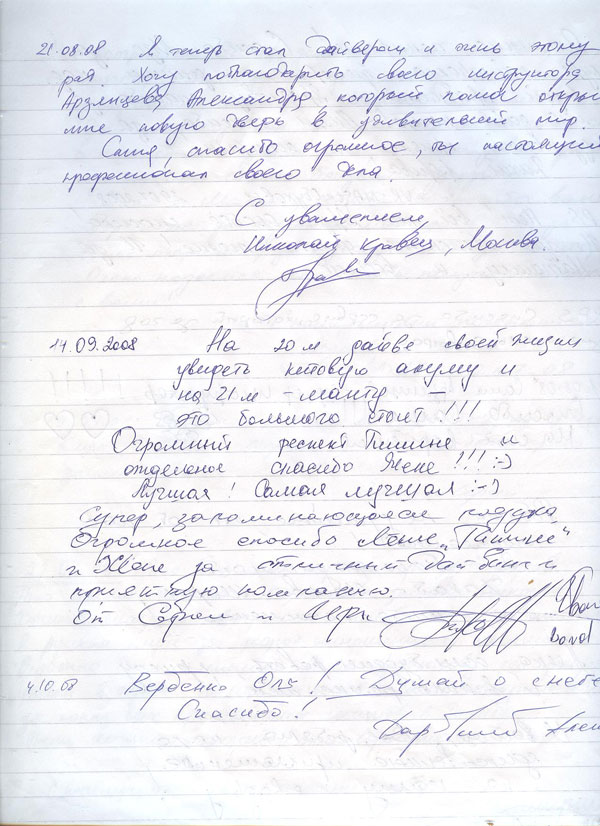 21.08.08 Я теперь стал дайвером и очень этому
рад. Хочу поблагодарить своего инструктора
Александра, который помог
мне новую дверь в удивительный мир.
Саша, спасибо огромное, ты настоящий
профессионал своего дела.
С уважением,
Николай Кравец, Москва.
14.09.2008 На 20м дайве своей жизни
увидеть китовую акулу и
на 21м – манту –
это большого стоит!!!
Огромный респект и
отдельное спасибо Жене!!! :-)
Лучшая! Самая лучшая :-)
Супер, запоминающаяся
Огромное спасибо
и Жене за отличный дайвинг и
приятную компанию.
От и
4.10.08 Оля! Думай о
Спасибо!